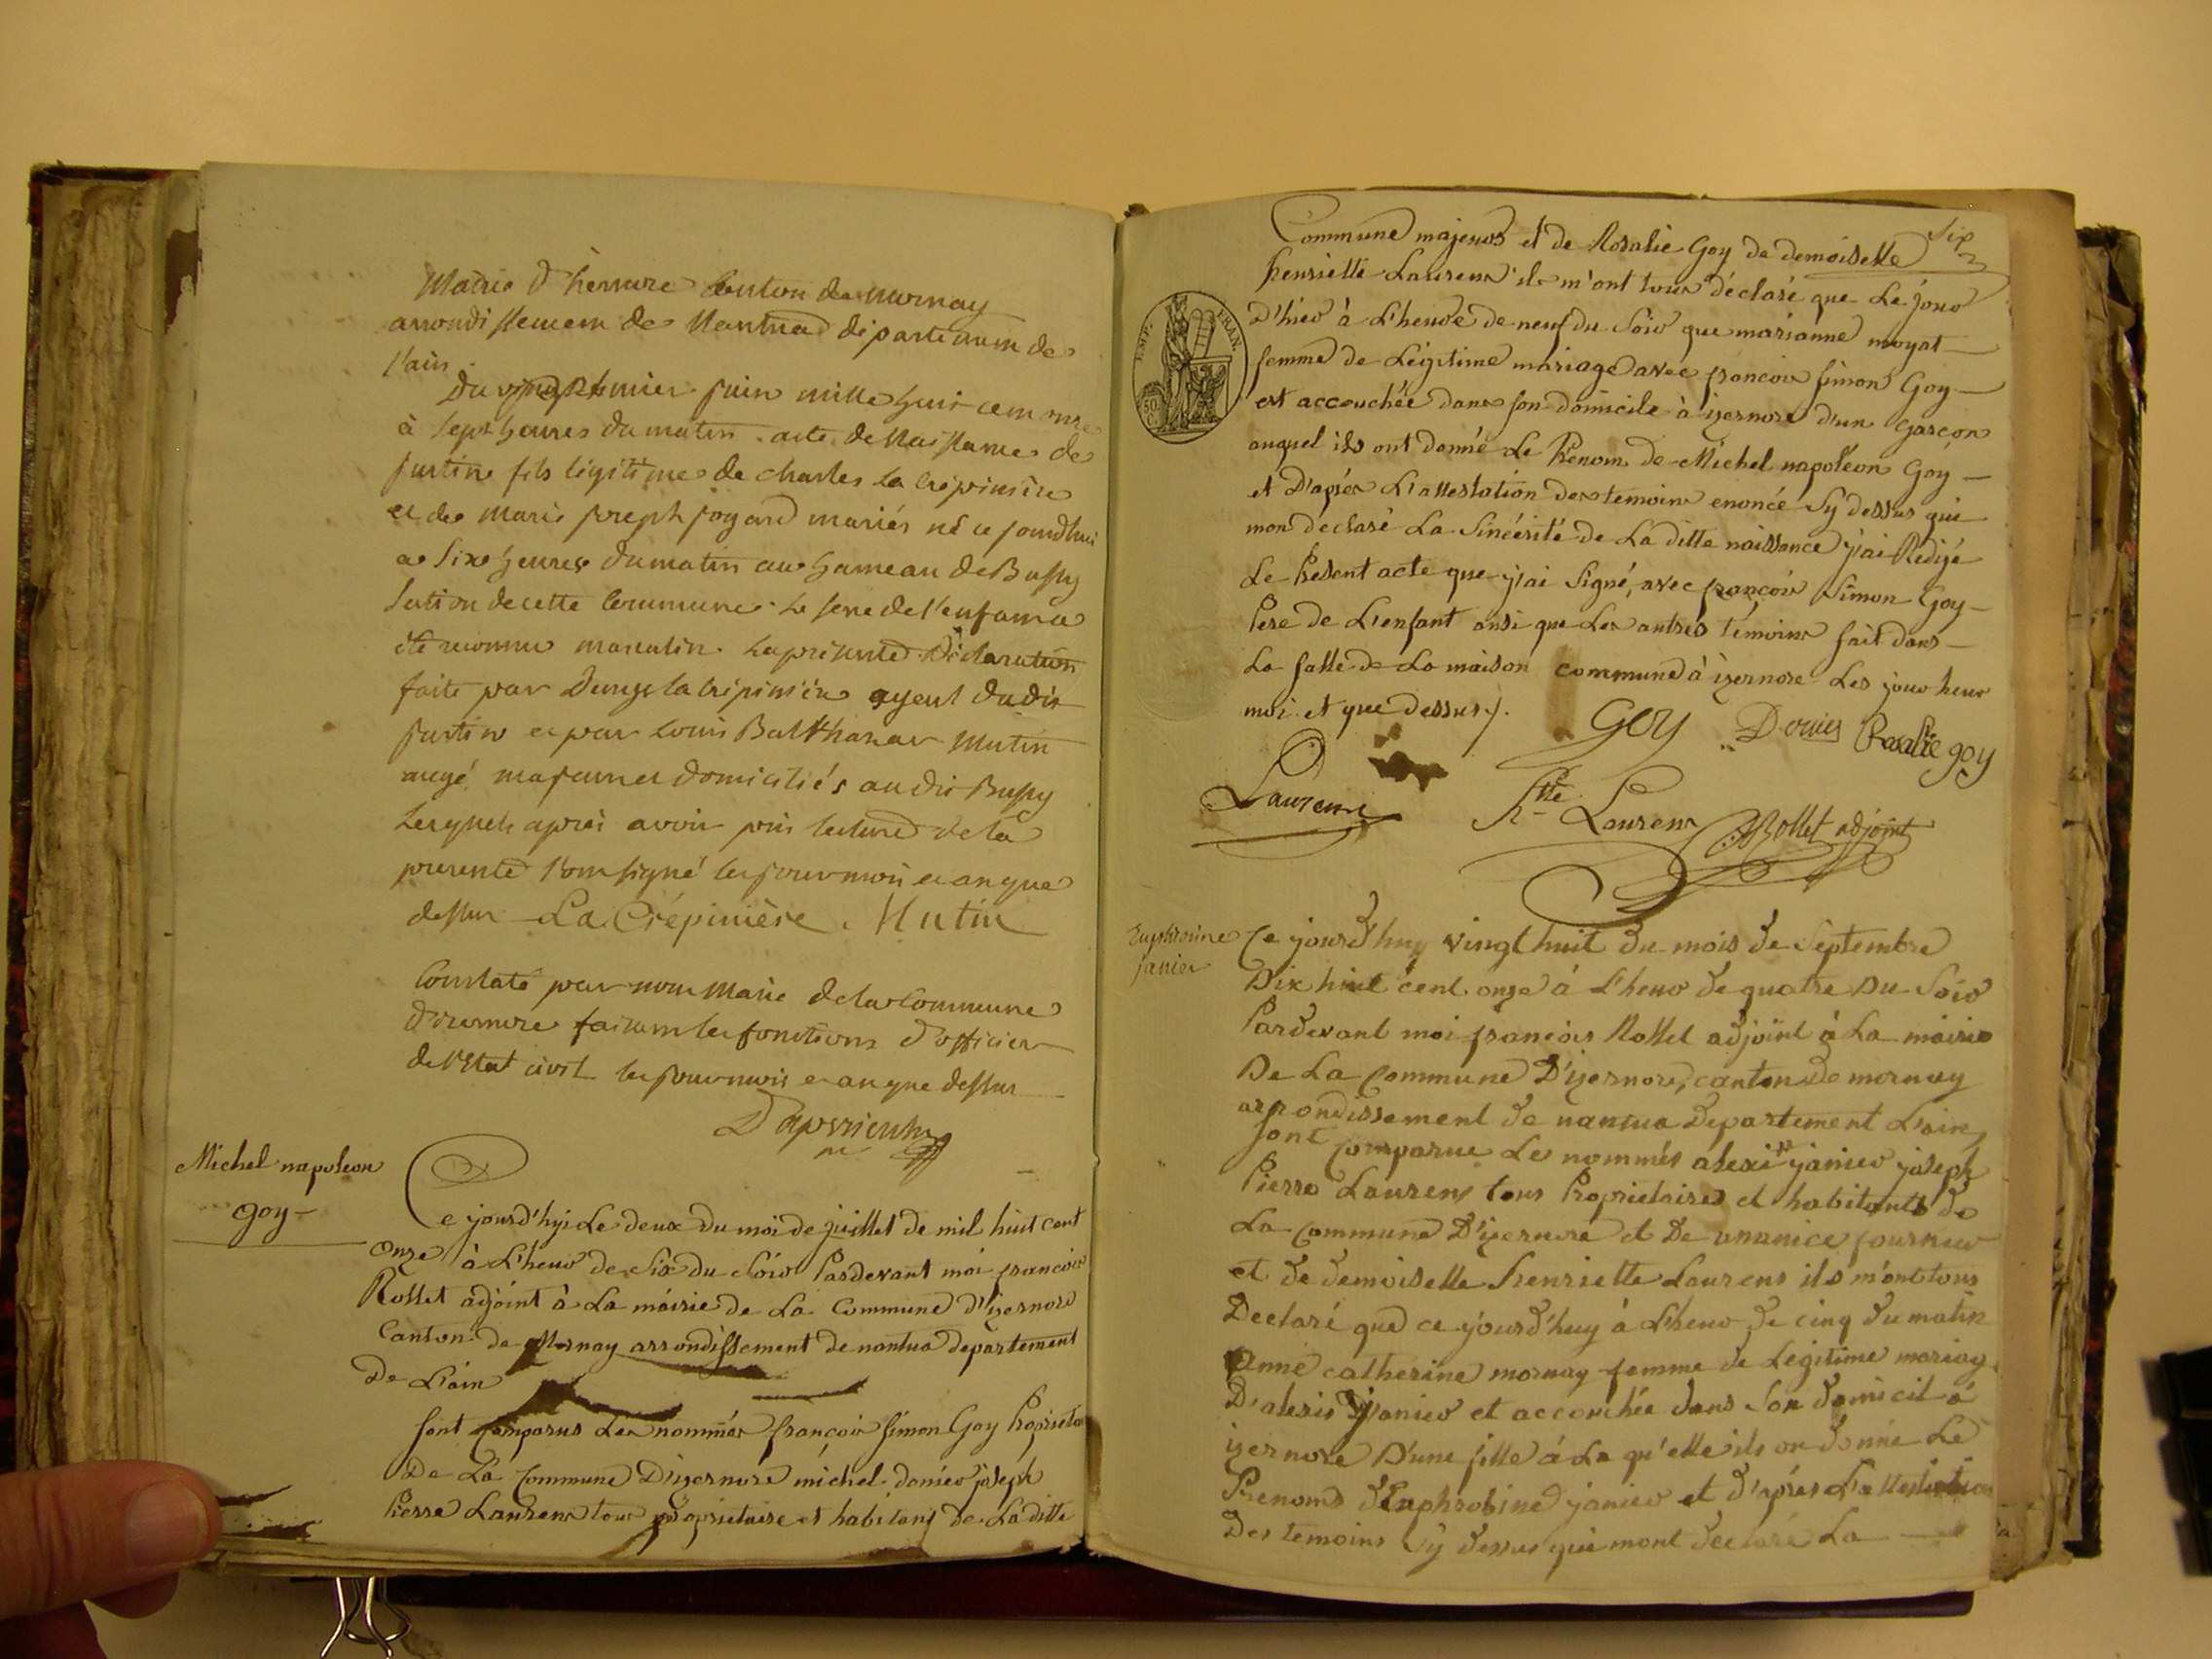 Mairie d'hernore Canton de Mornay
arrondissement de Nantua département de
l'ain
Du juin mille huit cent onze
à sept heures du matin acte de Naissance de
Justin fils légitime de charles La Crépinière
et de Marie joseph joyard mariés né ce jourdhui
a six heures du matin au hameau de Bussy
section de cette Commune le sexe de l'enfant a
été reconnu masculin. La présente Déclaration
faite par la Crépinière ayeul du dit
Justin et par Louis Balthazar Mutin
majeurs et domiciliés au dit Bussy
Lesquels après avoir pris lecture de la
presente l'ont signé les jour mois et an que
dessus La Crépinière. Mutin
Constaté par nous Maire de la Commune
d'izernore faisant les fonctions d'officier
de l'Etat civil les jour mois et an que dessus
Michel napoleon
goy
Ce jourd'hÿi Le deux du moi de juillet de mil huit cent
onze à L'heur de Six du Soir Pardevant moi francois
Rollet adjoint à La mairie de La Commune d'izernore
Canton de Mornay arrondissement de nantua departement
De L'ain
sont comparus Les nommés françois simon Goy Proprieta
De La Commune D'izernore michel joseph
Pierre Laurens tous proprietaire et habitans de La ditte
Six
Commune majeurs et de Rosalie Goy de demoiselle
henriette Laurens ils m'ont tous déclaré que Le jour
D'hier à L'heure de neuf du Soir que marianne moyat
femme de Légitime mariage avec francois simon Goy
est accouchée dans son domicile à izernore d'un Garçon
auquel ils ont donné Le Prénom de Michel napoléon Goy
et D'aprés L'attestation des temoins enoncé Sy dessus qui
mon declaré La Sincérité de La ditte naissance j'ai Redigé
Le Present acte que j'ai Signé, avec françois Simon Goy
Pere de L'enfant ansi que Les autres temoins fait dans
La salle de La maison commune à izernore Les jour heur
moi et que dessus.
EMP. FRAN.
50 C.
Goy Rosalie goy
Laurens
htte Laurens Rollet adjoint
Euphrosine
janier
Ce jourd'huy vingt huit du mois de Septembre
Dix huit cent onze à L'heur de quatre Du Soir
Pardevant moi françois Rollet adjoint à La mairie
De La Commune D'izernore, canton de mornay
arrondissement de nantua Departement L'ain
sont Comparue Les nommés alexi janier joseph
Pierre Laurens tous Proprietaires et habitants de
La Commune D'izernore et De fournier
et de demoiselle henriette Laurens ils m'ont tous
Declaré que ce jourd'huy à L'heur de cinq du matin
Anne catherine mornay femme de Légitime mariag
D'alexis janier et accouchée dans Son domicil à
izernore D'une fille à La qu'elle ils on donné Le
Prenoms d'Euphrosine janier et d'après L'attestation
Des temoins Sy dessus qui mont declaré La